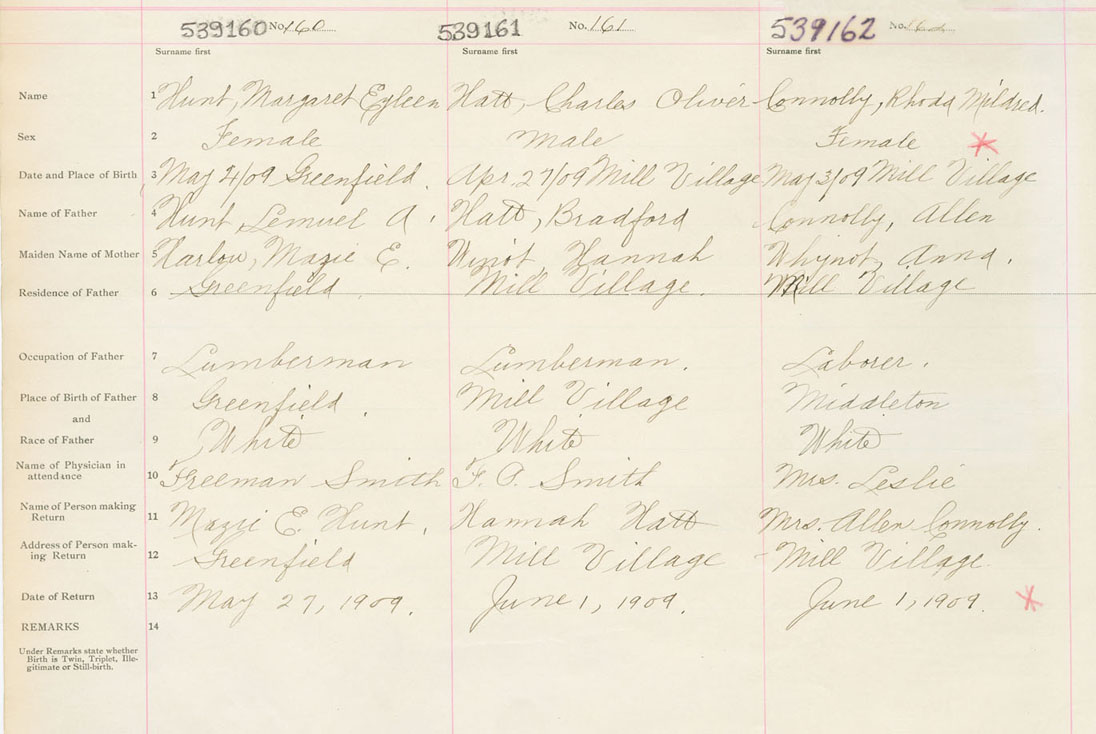 539160 No. 160 539161 No. 161 539162 No. 162
Surname first Surname first Surname first
Name 1 Hunt, Margaret Eyleen Hatt, Charles Oliver Connolly, Rhoda Mildred.
Sex 2 Female Male Female
Date and Place of Birth 3 May 4/09 Greenfield. Apr. 27/09 Mill Village May 3/09 Mill Village
Name of Father 4 Hunt, Lemuel A. Hatt, Bradford Connolly, Allen
Maiden Name of Mother 5 Harlow, Mazie E. Winot Hannah Whynot, Anna.
Residence of Father 6 Greenfield. Mill Village. Mill Village
Occupation of Father 7 Lumberman Lumberman. Laborer.
Place of Birth of Father 8 Greenfield. Mill Village Middleton
and
Race of Father 9 White White White
Name of Physician in
attendance 10 Freeman Smith F. P. Smith Mrs. Leslie
Name of Person making
Return 11 Mazie E. Hunt. Hannah Hatt Mrs. Allen Connolly.
Address of Person mak-
ing Return 12 Greenfield Mill Village Mill Village.
Date of Return 13 May 27, 1909. June 1, 1909. June 1, 1909.
REMARKS 14
Under Remarks state whether
Birth is Twin, Triplet, Ille-
gitimate or Still-birth.